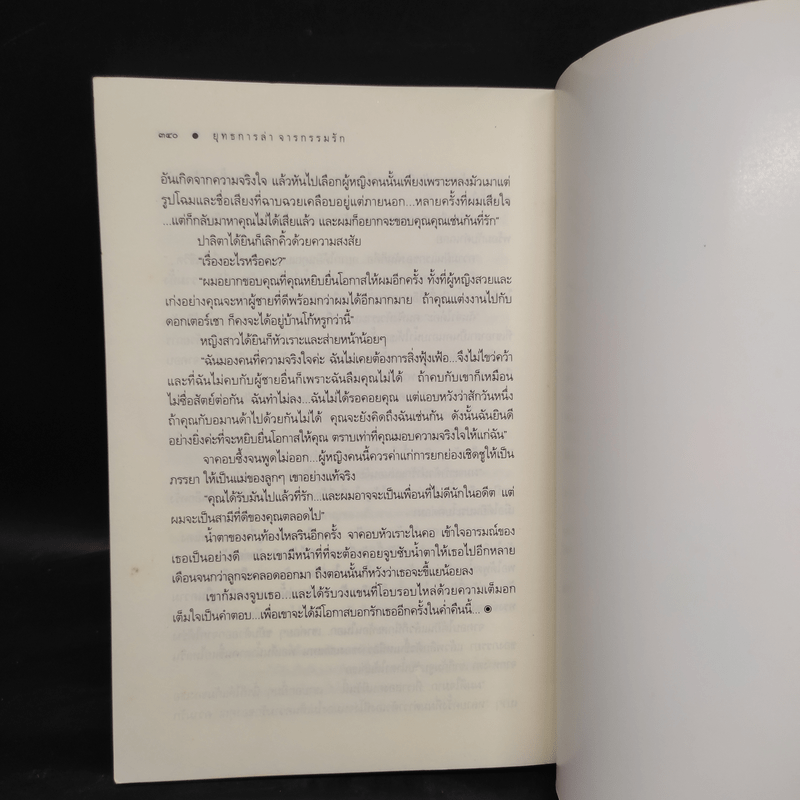 ๓๔๐ ● ยุทธการล่า จารกรรมรัก
อันเกิดจากความจริงใจ แล้วหันไปเลือกผู้หญิงคนนั้นเพียงเพราะหลงมัวเมาแต่
รูปโฉมและชื่อเสียงที่ฉาบฉวยเคลือบอยู่แต่ภายนอก...หลายครั้งที่ผมเสียใจ
...แต่ก็กลับมาหาคุณไม่ได้เสียแล้ว และผมก็อยากจะขอบคุณคุณเช่นกันที่รัก”
ปาลิตาได้ยินก็เลิกคิ้วด้วยความสงสัย
“เรื่องอะไรหรือคะ?”
“ผมอยากขอบคุณที่คุณหยิบยื่นโอกาสให้ผมอีกครั้ง ทั้งที่ผู้หญิงสวยและ
เก่งอย่างคุณจะหาผู้ชายที่ดีพร้อมกว่าผมได้อีกมากมาย ถ้าคุณแต่งงานไปกับ
ดอกเตอร์เชา ก็คงจะได้อยู่บ้านโก้หรูกว่านี้”
หญิงสาวได้ยินก็หัวเราะและส่ายหน้าน้อยๆ
“ฉันมองคนที่ความจริงใจค่ะ ฉันไม่เคยต้องการสิ่งฟุ้งเฟ้อ...จึงไม่ไขว่คว้า
และที่ฉันไม่คบกับผู้ชายอื่นก็เพราะฉันลืมคุณไม่ได้ ถ้าคบกับเขาก็เหมือน
ไม่ซื่อสัตย์ต่อกัน ฉันทำไม่ลง...ฉันไม่ได้รอคอยคุณ แต่แอบหวังว่าสักวันหนึ่ง
ถ้าคุณกับอมานด้าไปด้วยกันไม่ได้ คุณจะยังคิดถึงฉันเช่นกัน ดังนั้นฉันยินดี
อย่างยิ่งค่ะที่จะหยิบยื่นโอกาสให้คุณ ตราบเท่าที่คุณมอบความจริงใจให้แก่ฉัน”
จาคอบซึ้งจนพูดไม่ออก...ผู้หญิงคนนี้ควรค่าแก่การยกย่องเชิดชูให้เป็น
ภรรยา ให้เป็นแม่ของลูกๆ เขาอย่างแท้จริง
“คุณได้รับมันไปแล้วที่รัก...และผมอาจจะเป็นเพื่อนที่ไม่ดีนักในอดีต แต่
ผมจะเป็นสามีที่ดีของคุณตลอดไป”
น้ำตาของคนท้องไหลรินอีกครั้ง จาคอบหัวเราะในคอ เข้าใจอารมณ์ของ
เธอเป็นอย่างดี และเขามีหน้าที่ที่จะต้องคอยจูบซับน้ำตาให้เธอไปอีกหลาย
เดือนจนกว่าลูกจะคลอดออกมา ถึงตอนนั้นก็หวังว่าเธอจะขี้แยน้อยลง
เขาก้มลงจูบเธอ...และได้รับวงแขนที่โอบรอบไหล่ด้วยความเต็มอก
เต็มใจเป็นคำตอบ...เพื่อเขาจะได้มีโอกาสบอกรักเธออีกครั้งในค่ำคืนนี้... ◉